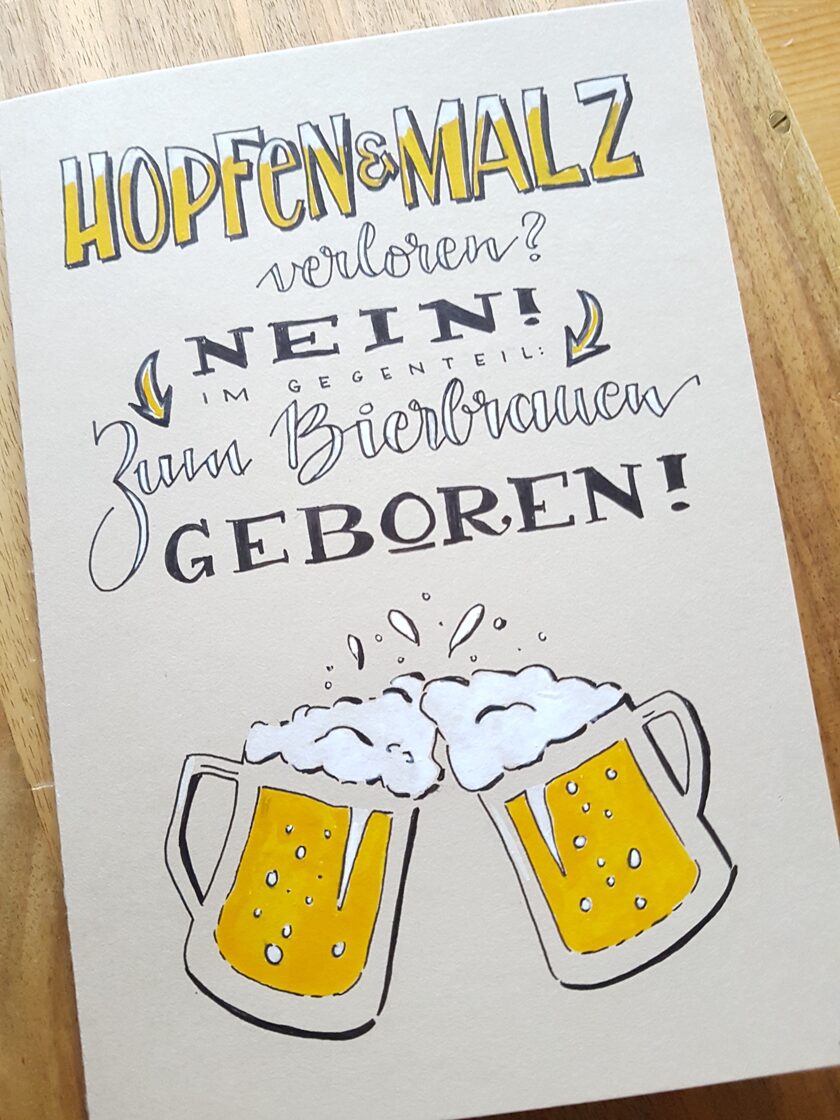 HOPFEN & MALZ
verloren?
NEIN!
IM GEGENTEIL:
Zum Bierbrauen
GEBOREN!